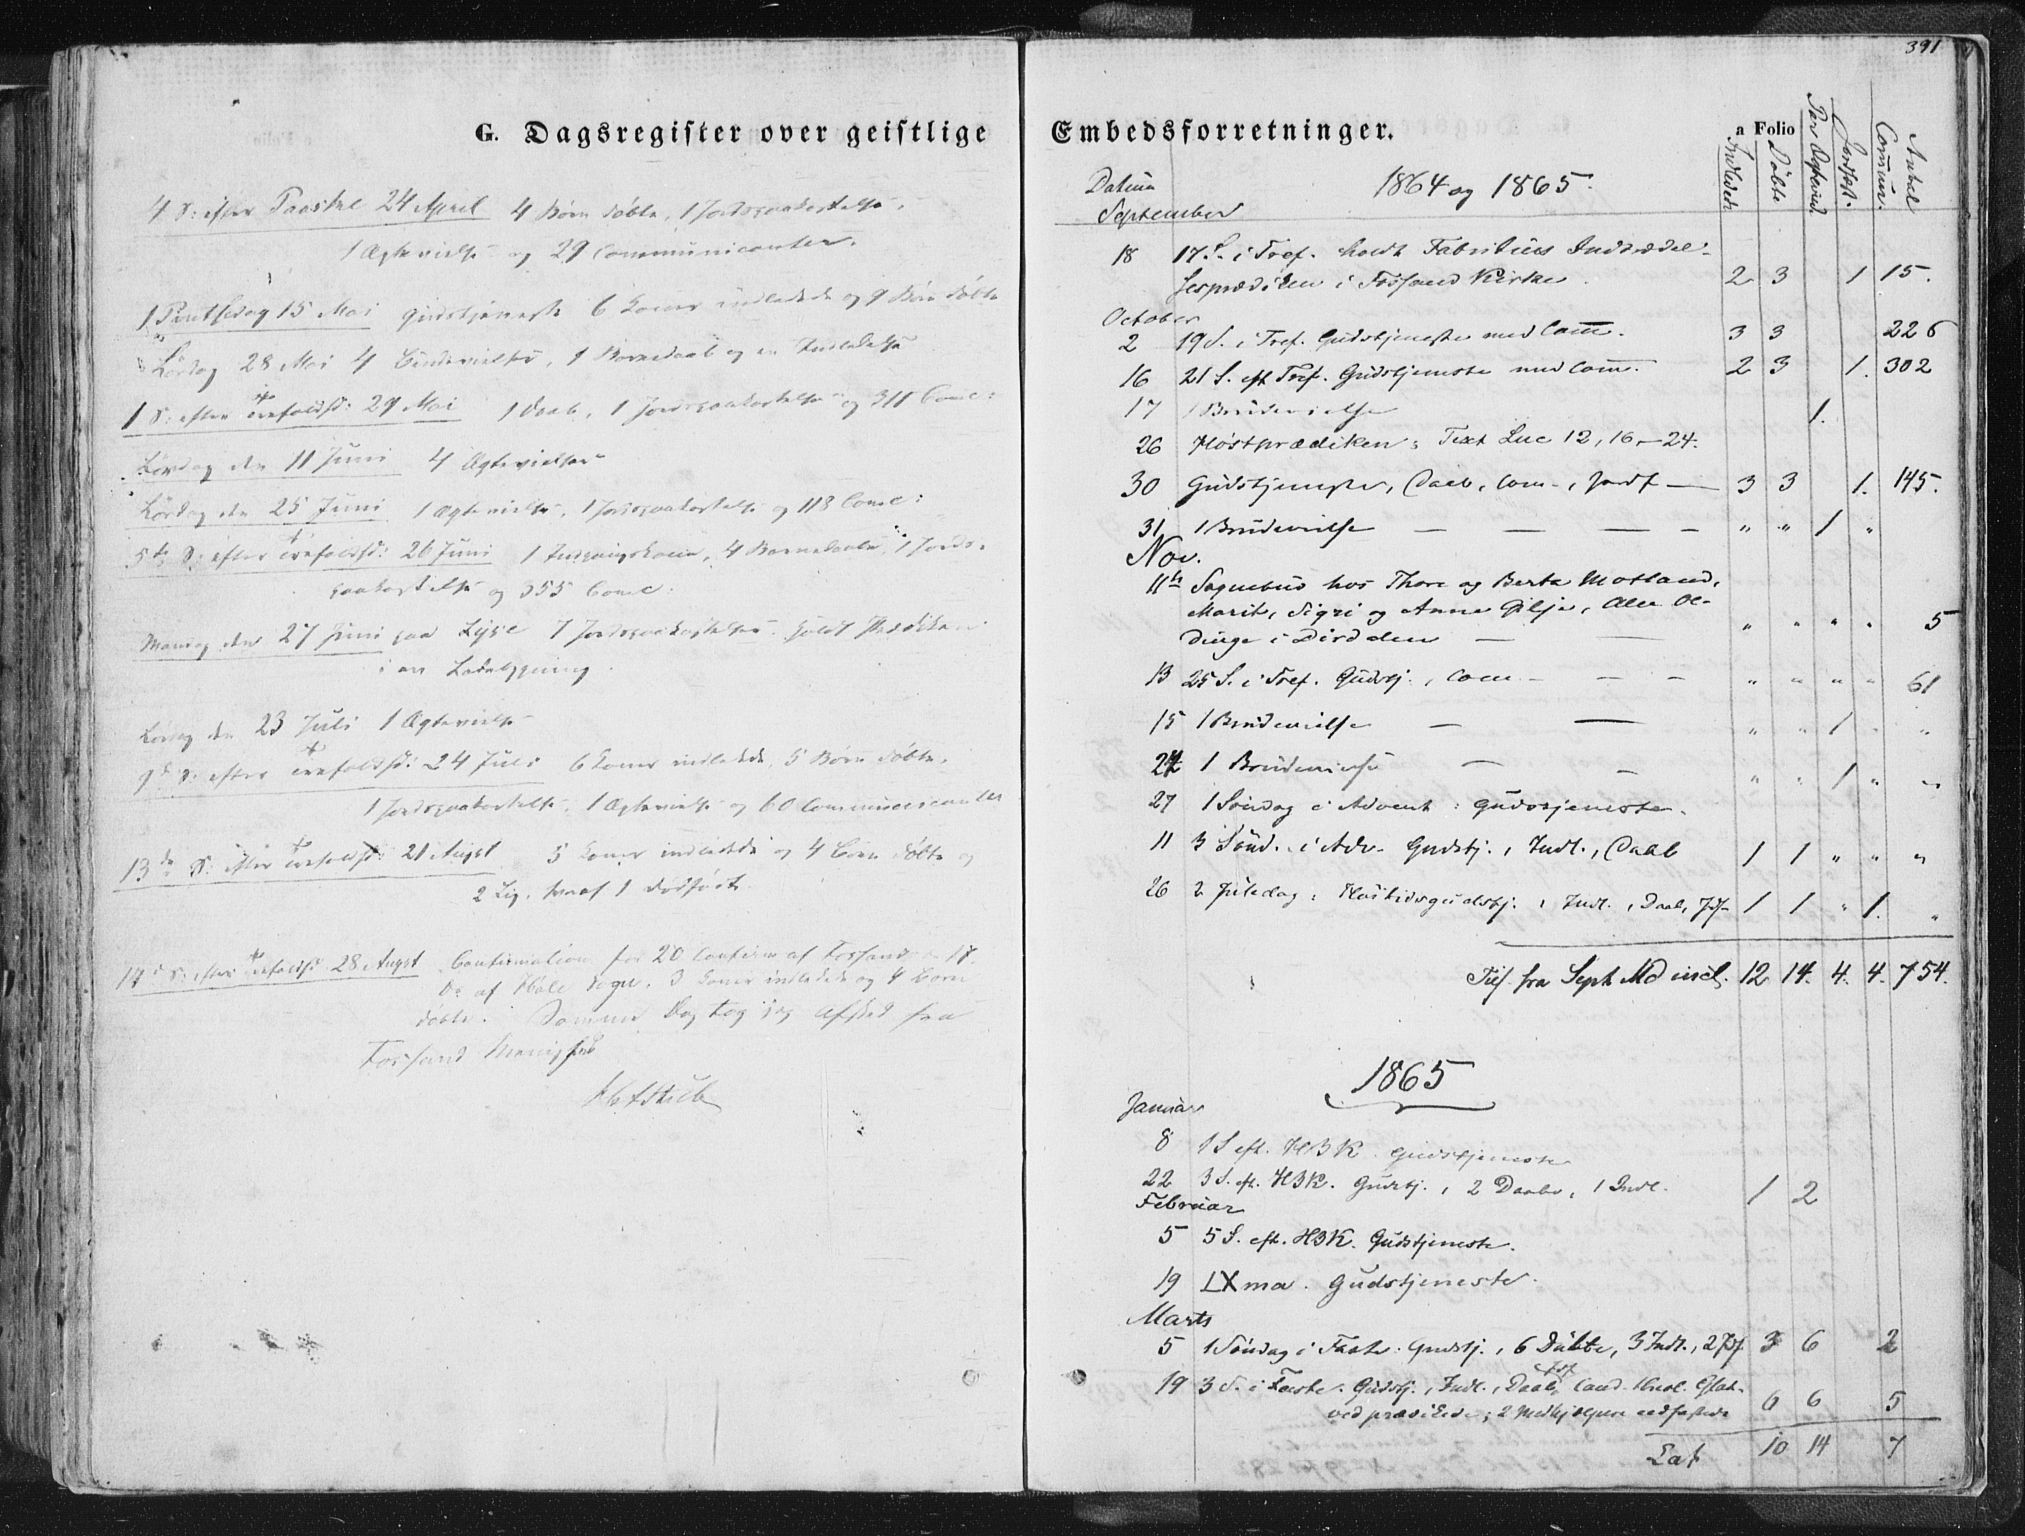 G. Dagsregister over geistlige
4 S: efter Paaske 24 April 4 Børn døbte, 1 Jordspaakastelse,
1 Ægtevielse og 29 Communicanter.
1 Pintsedag 15 Mai Gudstjeneste 6 Koner indledede og 9 Børn døbte
Lørdag 28 Mai 4 1 Barnedaab og en Indledelse
1 S: efter Trefoldsf: 29 Mai 1 Daab, 1 Jordspaakastelse og 311 Com:
Lørdag den 11 Juni 4 Ægtevielser
Lørdag den 25 Juni 1 Ægtevielse, 1 Jordspaakastelse og 118 Com:
5te S: efter Trefoldsf: 26 Juni 4 Barnedaab, 1 Jords-
paakastelse og 355 Com:
Mandag den 27 Juni paa Lyse 7 Jordspaakastelser. Holdt Prædiken
i en Ladebygning.
Lørdag den 23 Juli 1 Ægtevielse
9de S: efter Trefoldsf: 24 Juli 6 Koner indledede, 5 Børn døbte,
1 Jordspaakastelse, 1 Ægtevielse og 60 Communicanter
13de S: efter Trefoldsf: 21 Augst 5 Koner indledede og 4 Børn døbte og
2 Lig, hvoraf 1 dødfødt.
14 S: efter Trefoldsf: 28 Augst Confirmation for 20 Confirm af Fossand
Do af Hole Sogn. 3 Koner indledede og 4 Børn
døbte. Samme Dag tog jeg Afsked fra
Fossand Menighed
391
Embedsforretninger.
a Folio
Indledede Døbte Par Ægteviede Jordfæst. Antal Commun.
Datum 1864 og 1865.
September
18 17 S. i Tref. holdt Fabritius Indtrædel-
sesprædiken i Fossand Kirke. 2 3 1 15.
October
2 19 S. i Tref. Gudstjeneste med Com. 3 3 226
16 21 S. eft Tref. Gudstjeneste med Com. 2 3 1. 302
17 1 Brudevielse 1.
26 Høstprædiken: Text Luc 12, 16-24.
30 Gudstjeneste, Daab, Com-, Jordf — 3 3 1. 145.
31 1 Brudevielse — — — — " " 1 "
Nov.
11te Sognebud hos Thore og Berta Motland,
Marit, Sigri og Anne Gilje, Ale Ol-
Dinge i Dirdalen — — " " " " 5
13 25 S. i Tref. Gudstj., Com — — — " " " " 61
15 1 Brudevielse — — " " 1 " "
24 1 Brudevielse — — " " 1 " "
27 1 Søndag i Advent: Gudstjeneste.
11 3 Sønd. i Adv. Gudstj., Indl., Daab 1 1 " " "
26 2 Juledag: Høitidsgudstj., Indl., Daab, Jdf. 1 1 " 1. "
Tils. fra Sept Md incl. 12 14. 4. 4. 754.
1865
Januar
8 1 S eft. H3K. Gudstjeneste
22 3 S. eft. H3K. Gudstj., 2 Daabe, 1 Indl. 1 2
Februar
5 5 S. eft. H3K. Gudstjeneste.
19 LXma. Gudstjeneste.
Marts
5 1 Søndag i Faste. Gudstj., 6 Døbte, 3 Indl., 2 Jdf. 3 6 2
19 3 S. i Faste. Gudstj., Indl., Daab, Jdf. Cand.
ved prædikede; 2 Medhjælpere 6 6 5
Lat 10 14 7